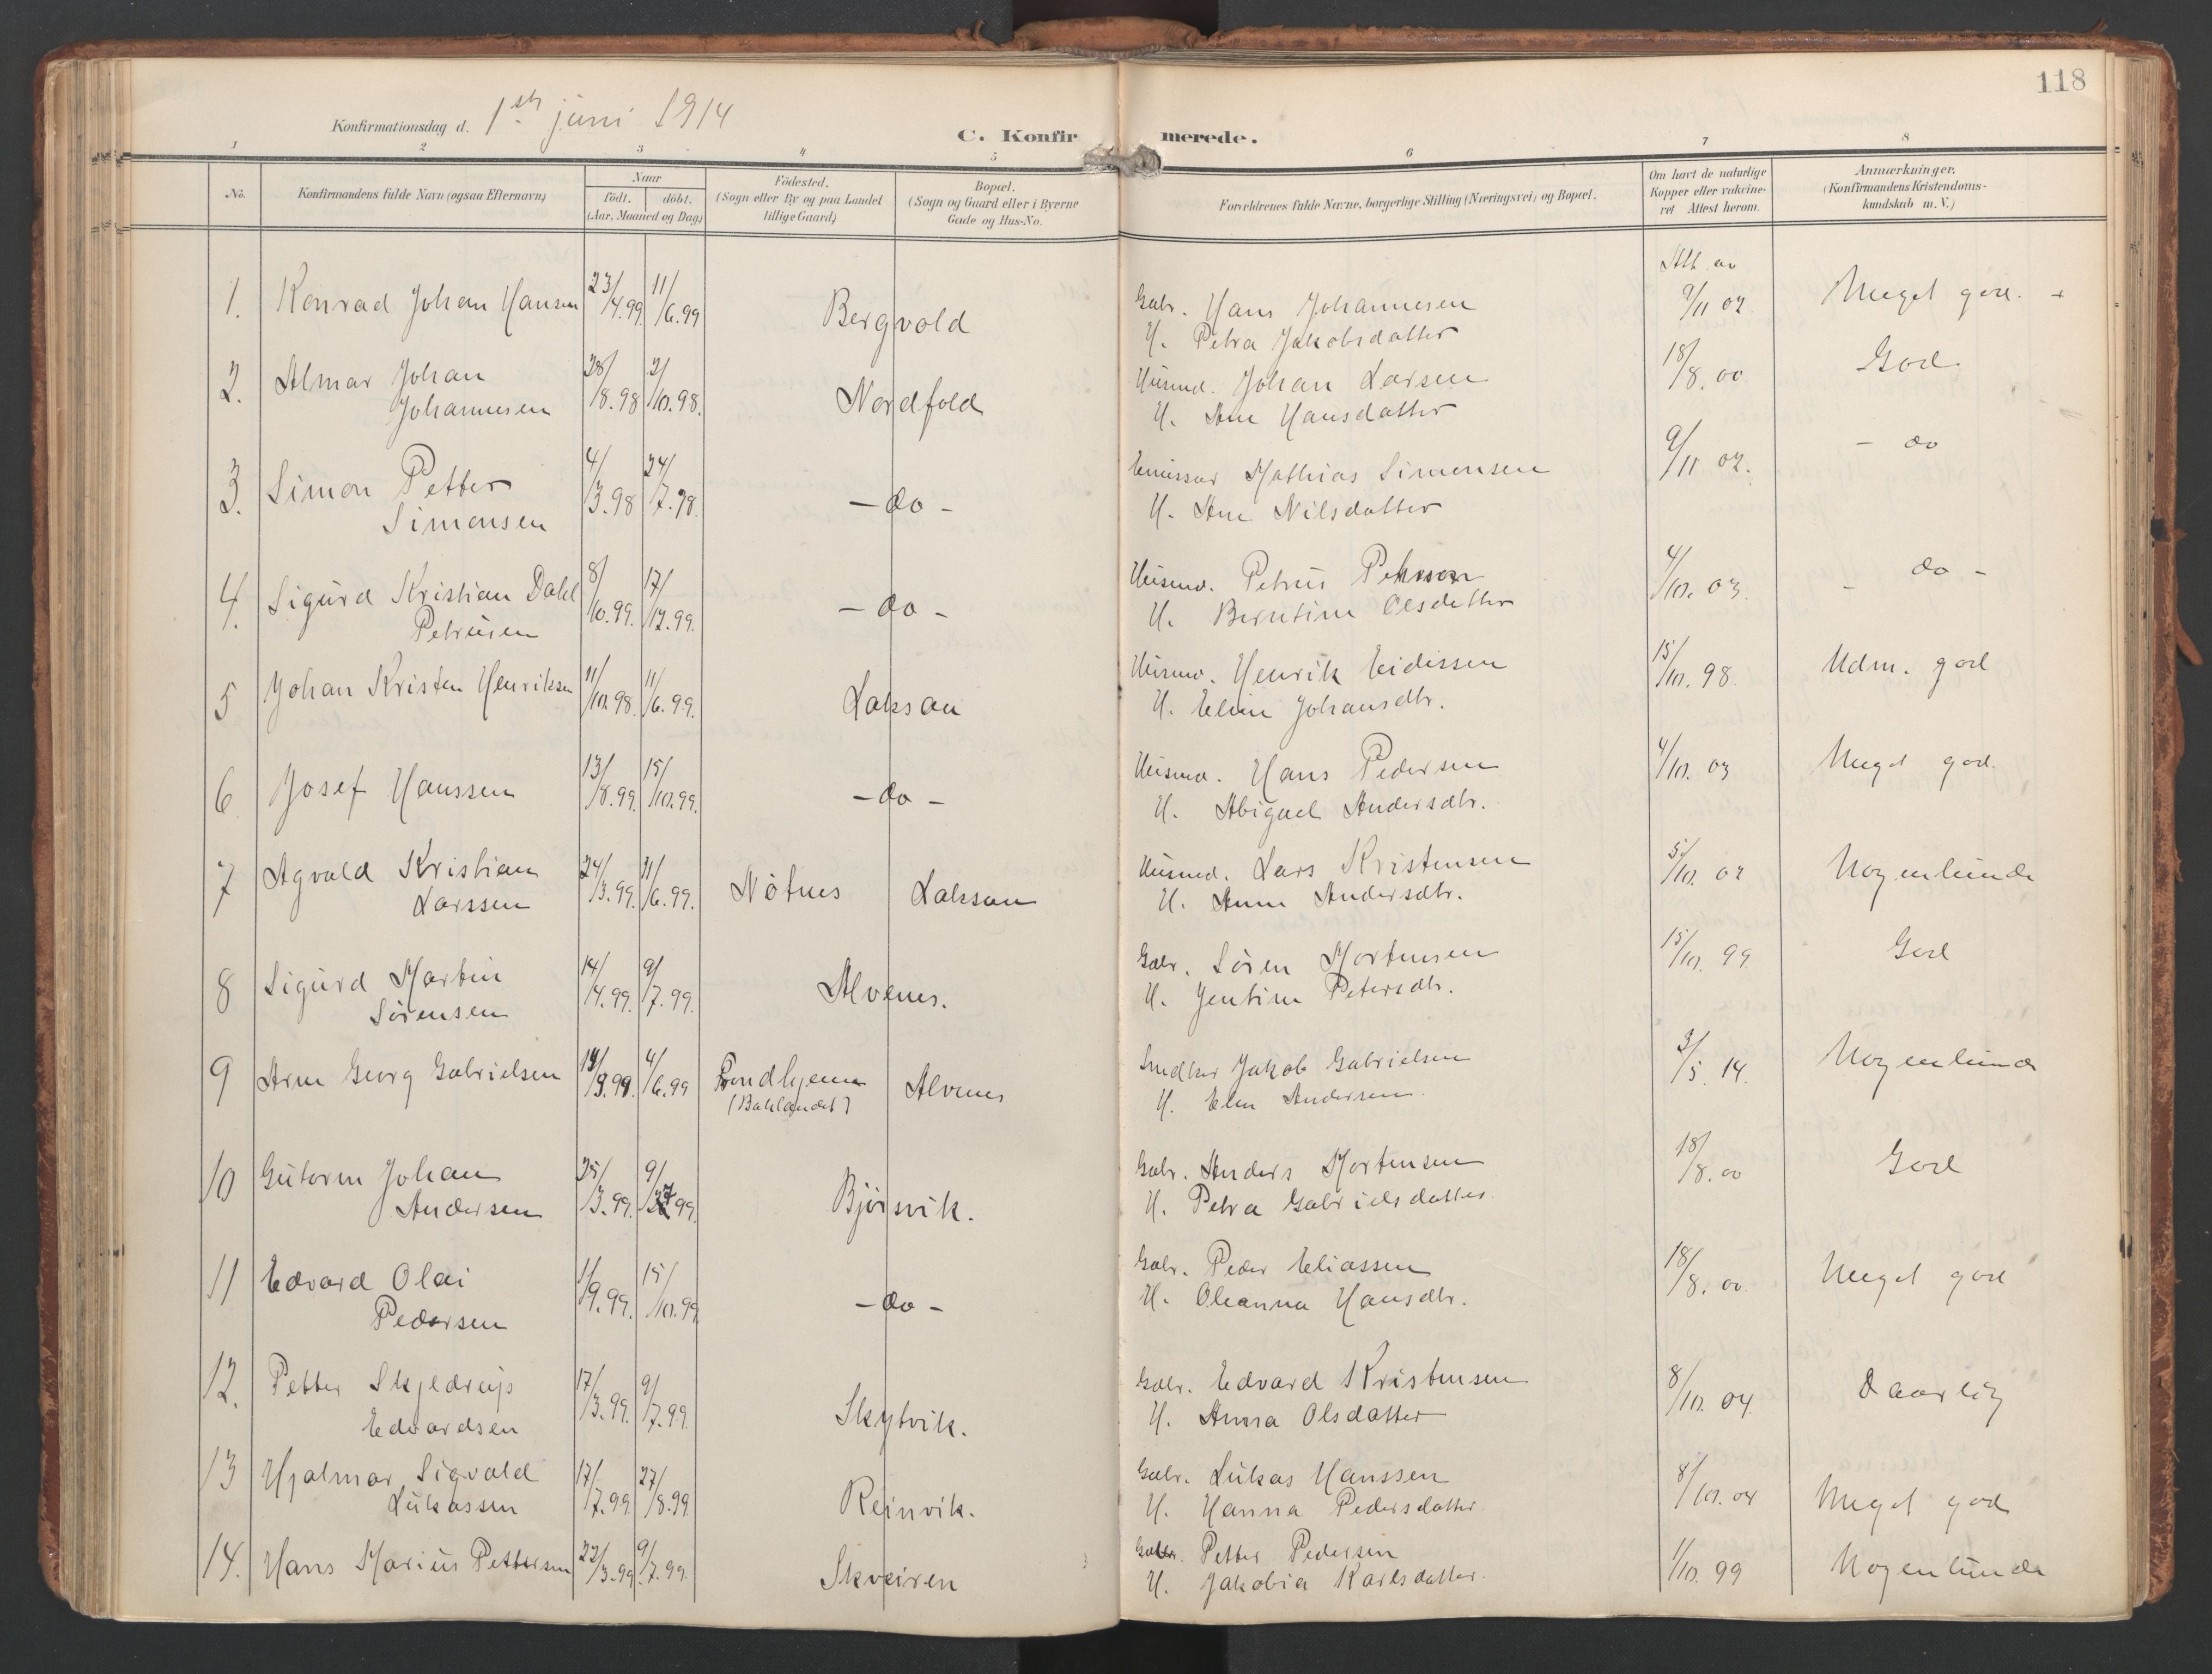 118
Konfirmationsdag d. 1ste juni 1914
C. Konfirmerede.
1 2 3 4 5 6 7 8
No.
Konfirmandens fulde Navn (ogsaa Efternavn)
Naar
født. døbt.
(Aar, Maaned og Dag)
Fødested.
(Sogn eller By og paa Landet
tillige Gaard)
Bopæl.
(Sogn og Gaard eller i Byerne
Gade og Hus-No.
Forældrenes fulde Navne, borgerlige Stilling (Næringsvei) og Bopæl.
Om havt de naturlige
Kopper eller vaccine-
ret Attest herom.
Anmærkninger.
(Konfirmandens Kristendoms-
kundskab m. V.)
1. Konrad Johan Hansen 23/4.99 11/6.99 Bergvold Gbr. Hans Johannesen Att. av 9/11 02 Meget god. +
H. Petra Jakobsdatter
2. Almar Johan 28/8.98 2/10.98. Nordfold Husmd. Johan Larsen 18/8.00 God
Johannesen H. Ane Hansdatter
3. Simon Petter 4/3.98 24/7.98. - do - Emissær Mathias Simonsen 9/11 02. - do
Simonsen H. Ane Nilsdatter
4. Sigurd Kristian Dahl 8/10.99. 17/12.99. - do - Husmd. Petrus Peterson 4/10. 03. - do -
Petrusen H. Berntine Olsdatter
5 Johan Kristen Henriksen 11/10.98. 11/6.99. Laksaa Husmd. Henrik Eidissen 15/10. 98. Udm. god
H. Eline Johansdtr.
6 Josef Hanssen 13/8.99. 15/10.99. - do - Husmd. Hans Pedersen 4/10. 03 Meget god.
H. Abigael Andersdtr.
7 Agvald Kristian 24/3.99. 11/6.99. Nøtnes Laksaa Husmd. Lars Kristensen 5/10. 02 Nogenlunde
Larssen H. Anne Andersdtr.
8 Sigurd Martin 14/4.99. 9/7.99. Alvenes. Gbr. Søren Mortensen 15/10. 99. God
Sørensen H. Jentine Petersdtr.
9 Arne Georg Gabrielsen 4/6.99 Trondhjem Alvenes Jakob Gabrielsen 3/5. 14. Nogenlunde
(Baklandet) H. Elen Andersen
10 Gutorm Johan 25/3.99. 9/7 99. Bjørsvik. Gbr. Anders Mortensen 18/8.00 God
Andersen H. Petra Gabrielsdatter
11 Edvard Olai 1/9.99. 15/10.99 - do - Gbr. Peder Eliassen 18/8. 00. Meget god
Pedersen H. Oleanna Hansdtr.
12. Petter Skjeldrup 17/3.99. 9/7.99. Skytvik. Gbr. Edvard Kristensen 8/10. 04 Daarlig
Edvardsen H. Anna Olsdatter
13 Hjalmar Sigvald 17/7.99 27/8.99 Reinvik. Gbr. Lukas Hanssen 8/10.04 Meget god
Lukassen H. Hanna Pedersdatter
14. Hans Marius Pettersen 22/3.99. 9/7.99. Skveiren Gbr. Petter Pedersen 1/10. 99 Nogenlunde
H. Jakobia Karlsdatter.